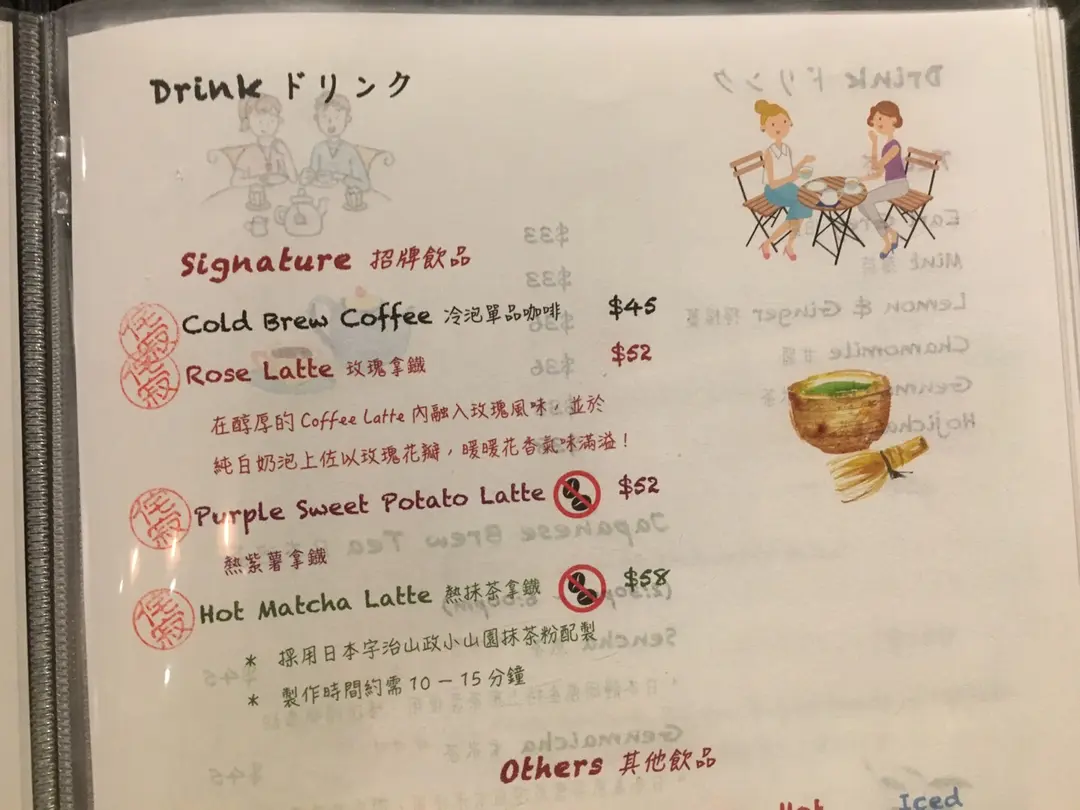 Drink ドリンク
Signature 招牌飲品
侘寂 Cold Brew Coffee 冷泡單品咖啡 $45
侘寂 Rose Latte 玫瑰拿鐵 $52
在醇厚的 Coffee Latte 內融入玫瑰風味，並於
純白奶泡上佐以玫瑰花瓣，暖暖花香氣味滿溢！
侘寂 Purple Sweet Potato Latte $52
熱紫薯拿鐵
侘寂 Hot Matcha Latte 熱抹茶拿鐵 $58
* 採用日本宇治山政小山園抹茶粉配製
* 製作時間約需 10 - 15 分鐘
Others 其他飲品
Hot Iced